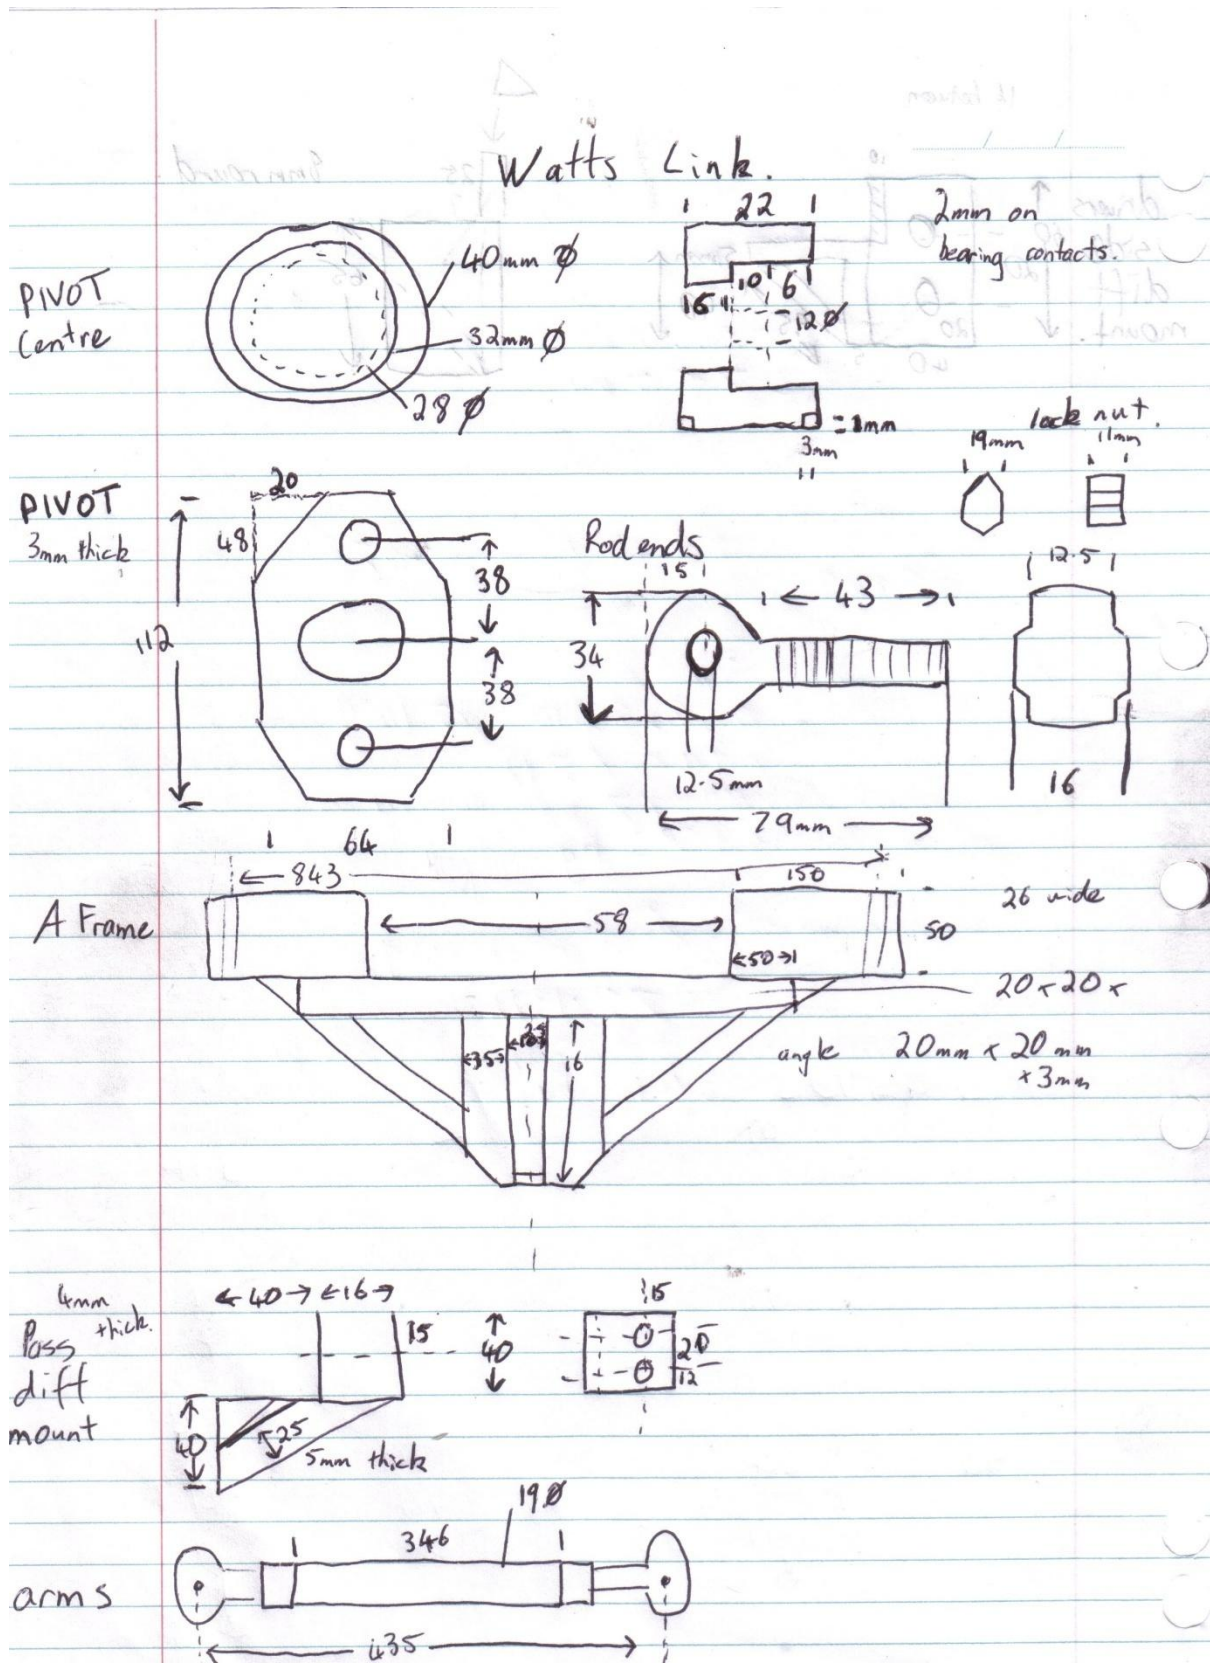 Watts Link.
PIVOT
Centre
40mm Ø
32mm Ø
28 Ø
22
16
10
6
12Ø
= 1mm
3mm
2mm on
bearing contacts.
lock nut.
19mm
11mm
PIVOT
3mm thick
20
48
112
38
38
64
Rod ends
15
43
34
12.5mm
79mm
12.5
16
A Frame
843
150
58
50
50
26 wide
20 x 20 x
angle 20mm x 20mm
x 3mm
35
25
16
4mm
thick.
Pass
diff
mount
40
16
15
40
40
25
5mm thick
15
20
12
arms
346
19Ø
435